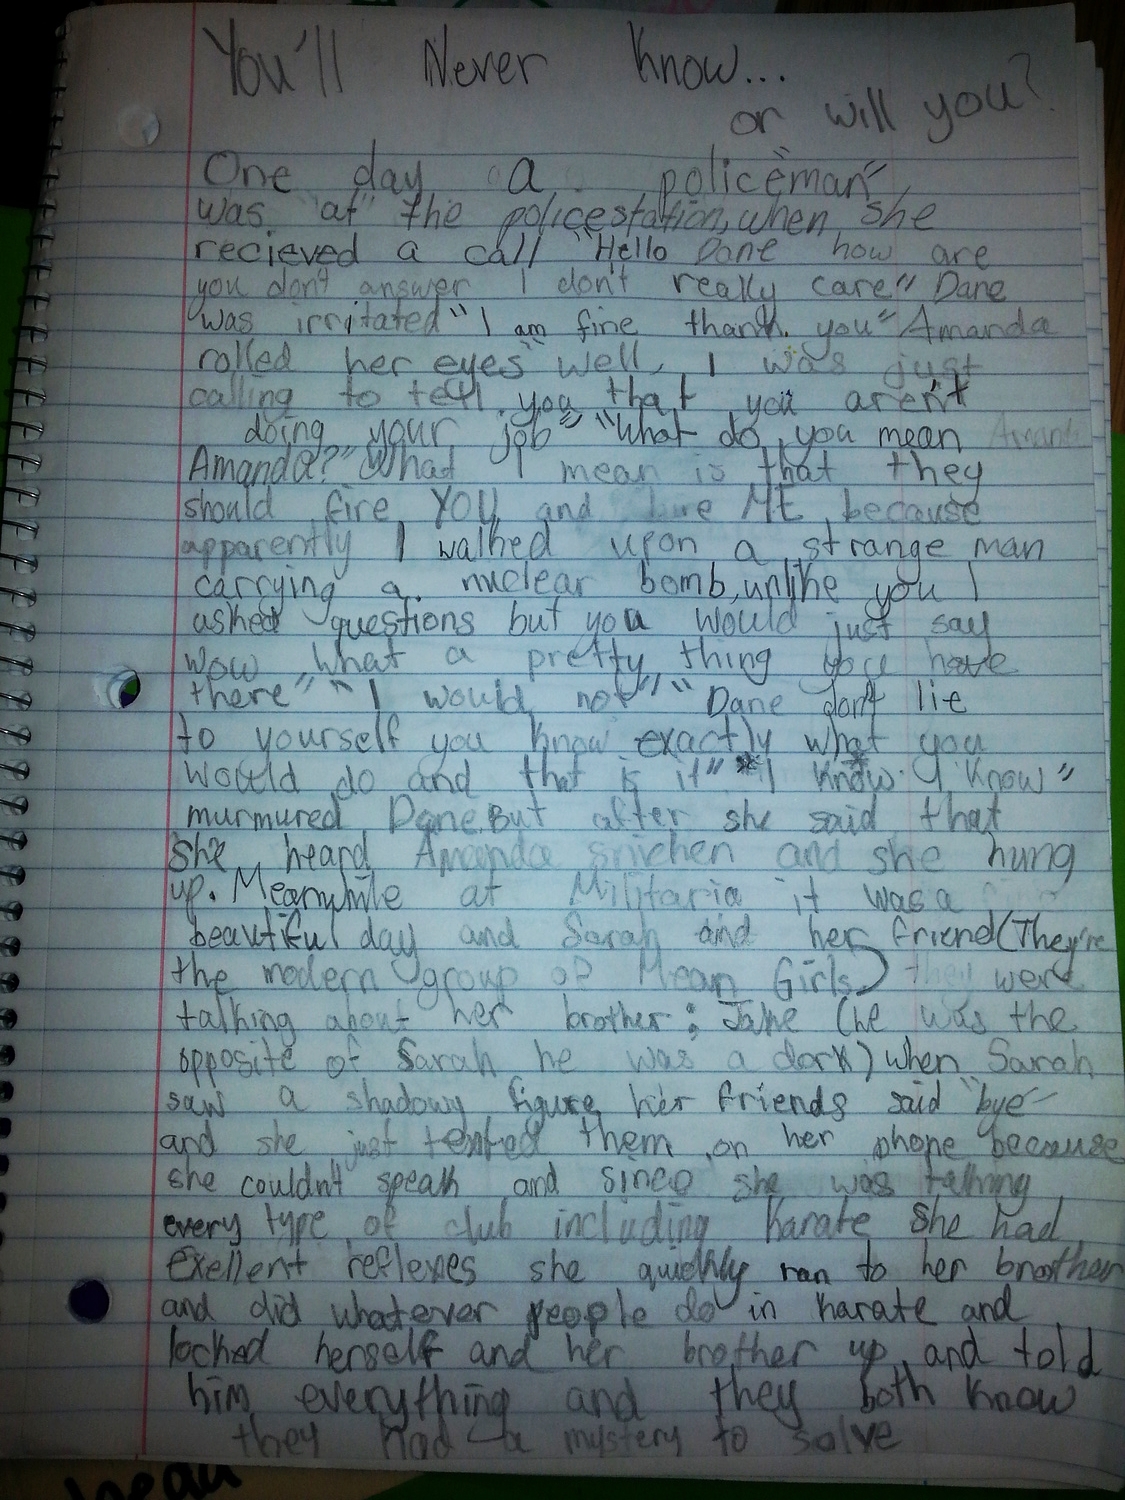 You'll Never Know...
or will you?
One day a "policeman"
was at the policestation, when she
recieved a call "Hello Dane how are
you don't answer I don't really care" Dane
was irritated "I am fine thank you" Amanda
rolled her eyes "well, I was just
calling to tell you that you aren't
doing your job" "what do you mean
Amanda?" "What I mean is that they
should fire YOU and hire ME because
apparently I walked upon a strange man
carrying a nuclear bomb, unlike you I
asked questions but you would just say
wow what a pretty thing you have
there" "I would not" "Dane don't lie
to yourself you know exactly what you
would do and that is it" "I know. I know"
murmured Dane. But after she said that
she heard Amanda snicken and she hung
up. Meanwhile at Militaria it was a
beautiful day and Sarah and her friend (They're
the modern group of Mean Girls) they were
talking about her brother; Jake (he was the
opposite of Sarah he was a dork) when Sarah
saw a shadowy figure her friends said "bye"
and she just texted them on her phone because
she couldn't speak and since she was talking
every type of club including Karate she had
exellent reflexes she quickly ran to her brother
and did whatever people do in karate and
locked herself and her brother up and told
him everything and they both know
they had a mystery to solve
head